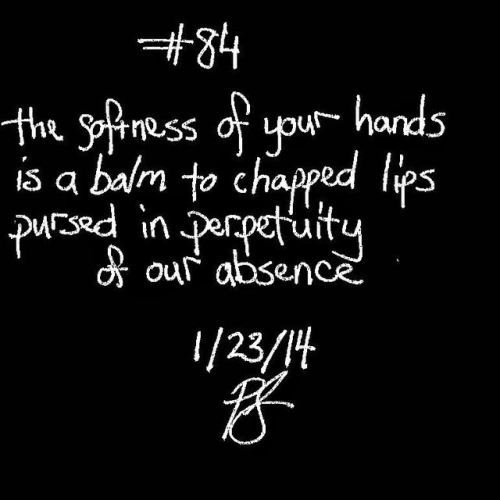 #84
the softness of your hands
is a balm to chapped lips
pursed in perpetuity
of our absence
1/23/14